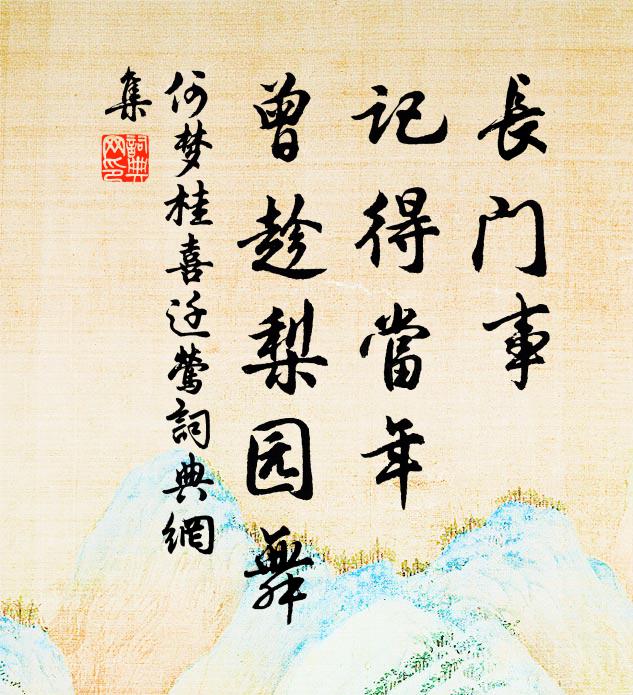 長門事
記得當年
曾趁梨园舞
何梦桂喜迁鶯詞典網
集
詞典
网印